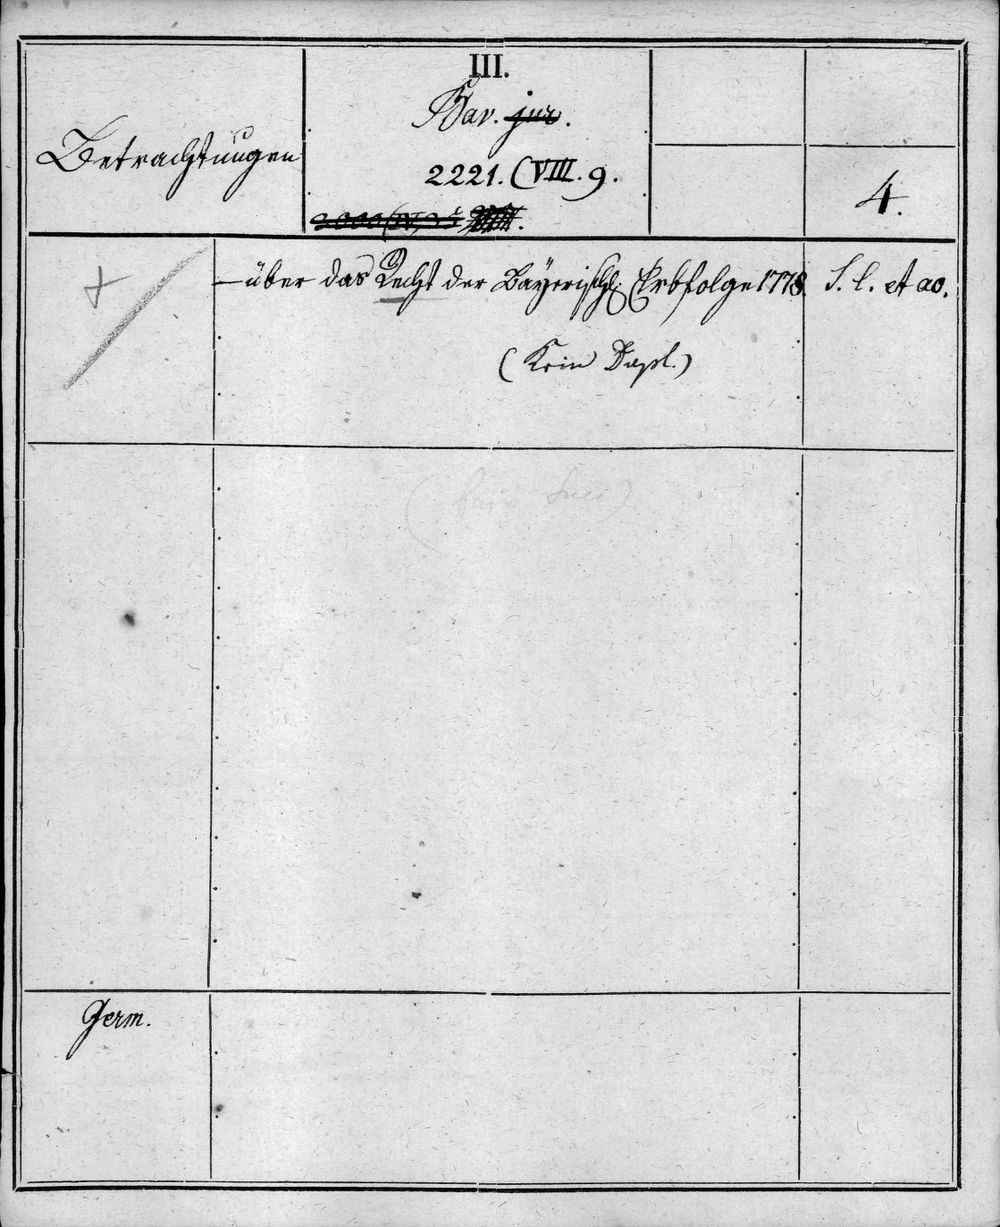 III.
Bav. jur.
Betrachtungen
2221. (VIII. 9.
4.
– über das Recht der Bayerischen Erbfolge 1778. S. l. et ao.
(Kein Dupl.)
Germ.